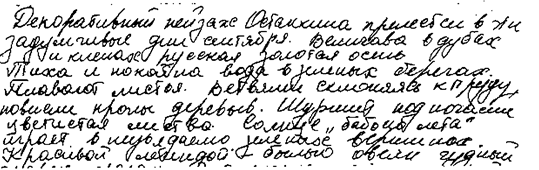 Декоративный пейзаж Останкина прелестен в эти
задумчивые дни сентября. Величава в дубах
и кленах русская золотая осень
Тиха и покатна вода в зеленых берегах.
Плавают листья. Ветвями склоняясь к пруду,
повисли кроны деревьев. Шуршит под ногами
цветистая листва. Солнце „бабьего лета"
играет в неувядаемо зеленых вершинах.
Красивой легендой - былью овеян чудный